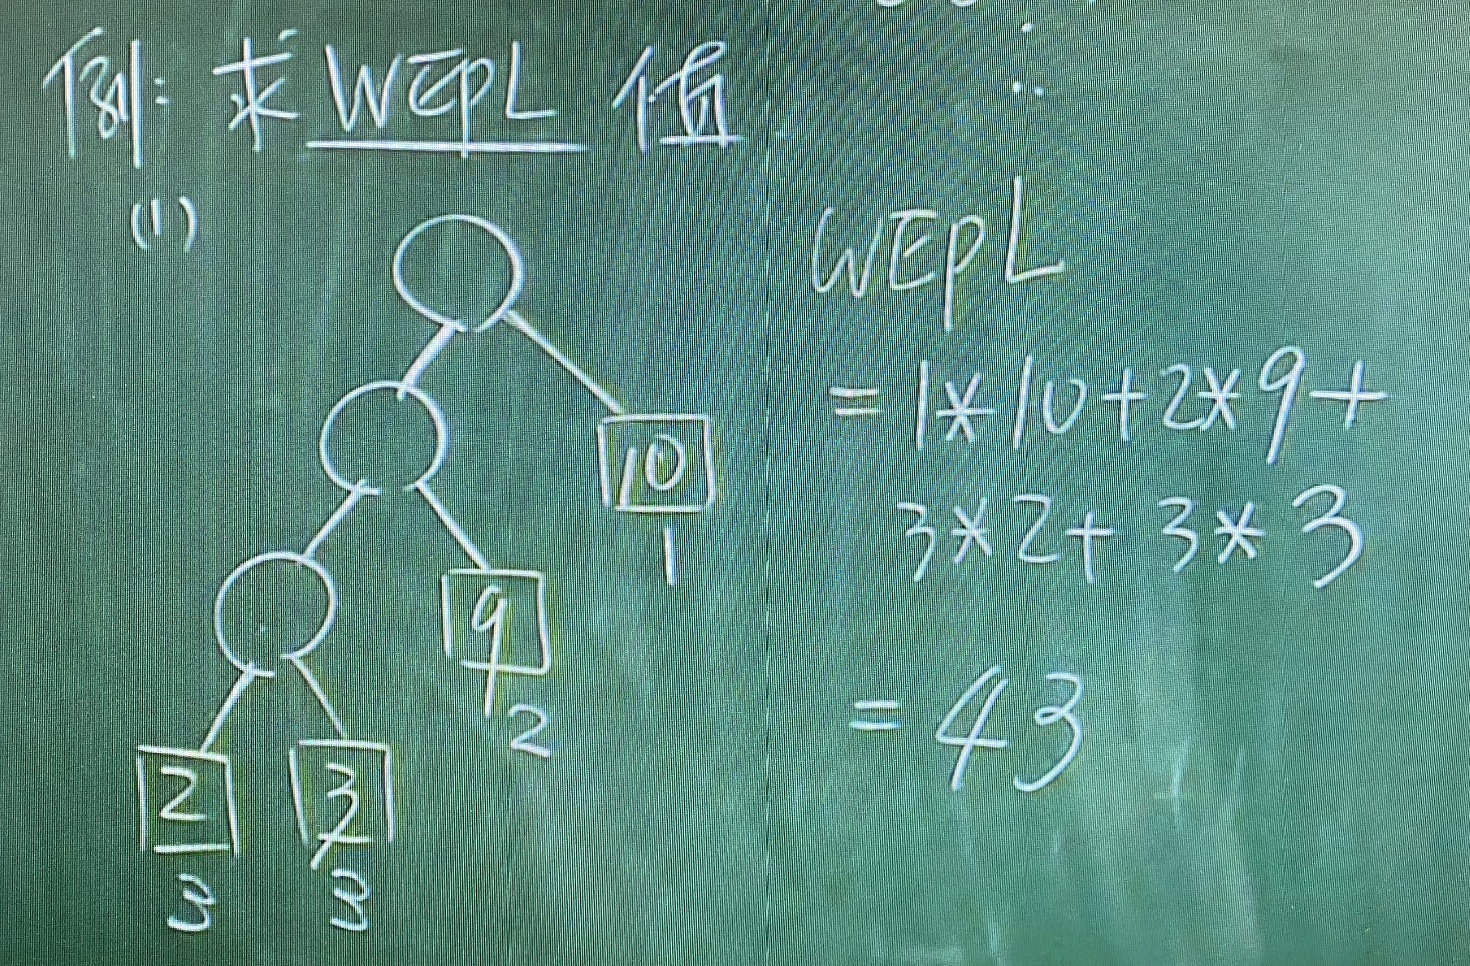 例: 求 WEPL 值
(1)
10
1
9
2
2
3
3
3
∴
WEPL
= 1*10+2*9+
3*2+3*3
= 43